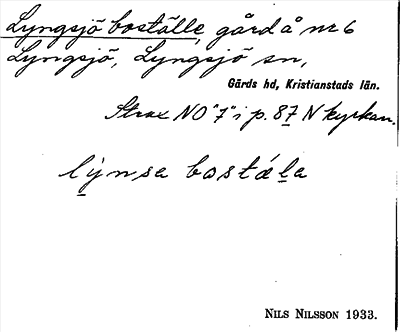 Lyngsjö boställe, gård å nr 6
Lyngsjö, Lyngsjö sn,
Gärds hd, Kristianstads län.
Strax NO "7" i p. 87 N kyrkan.
lýnsa bostála
NILS NILSSON 1933.